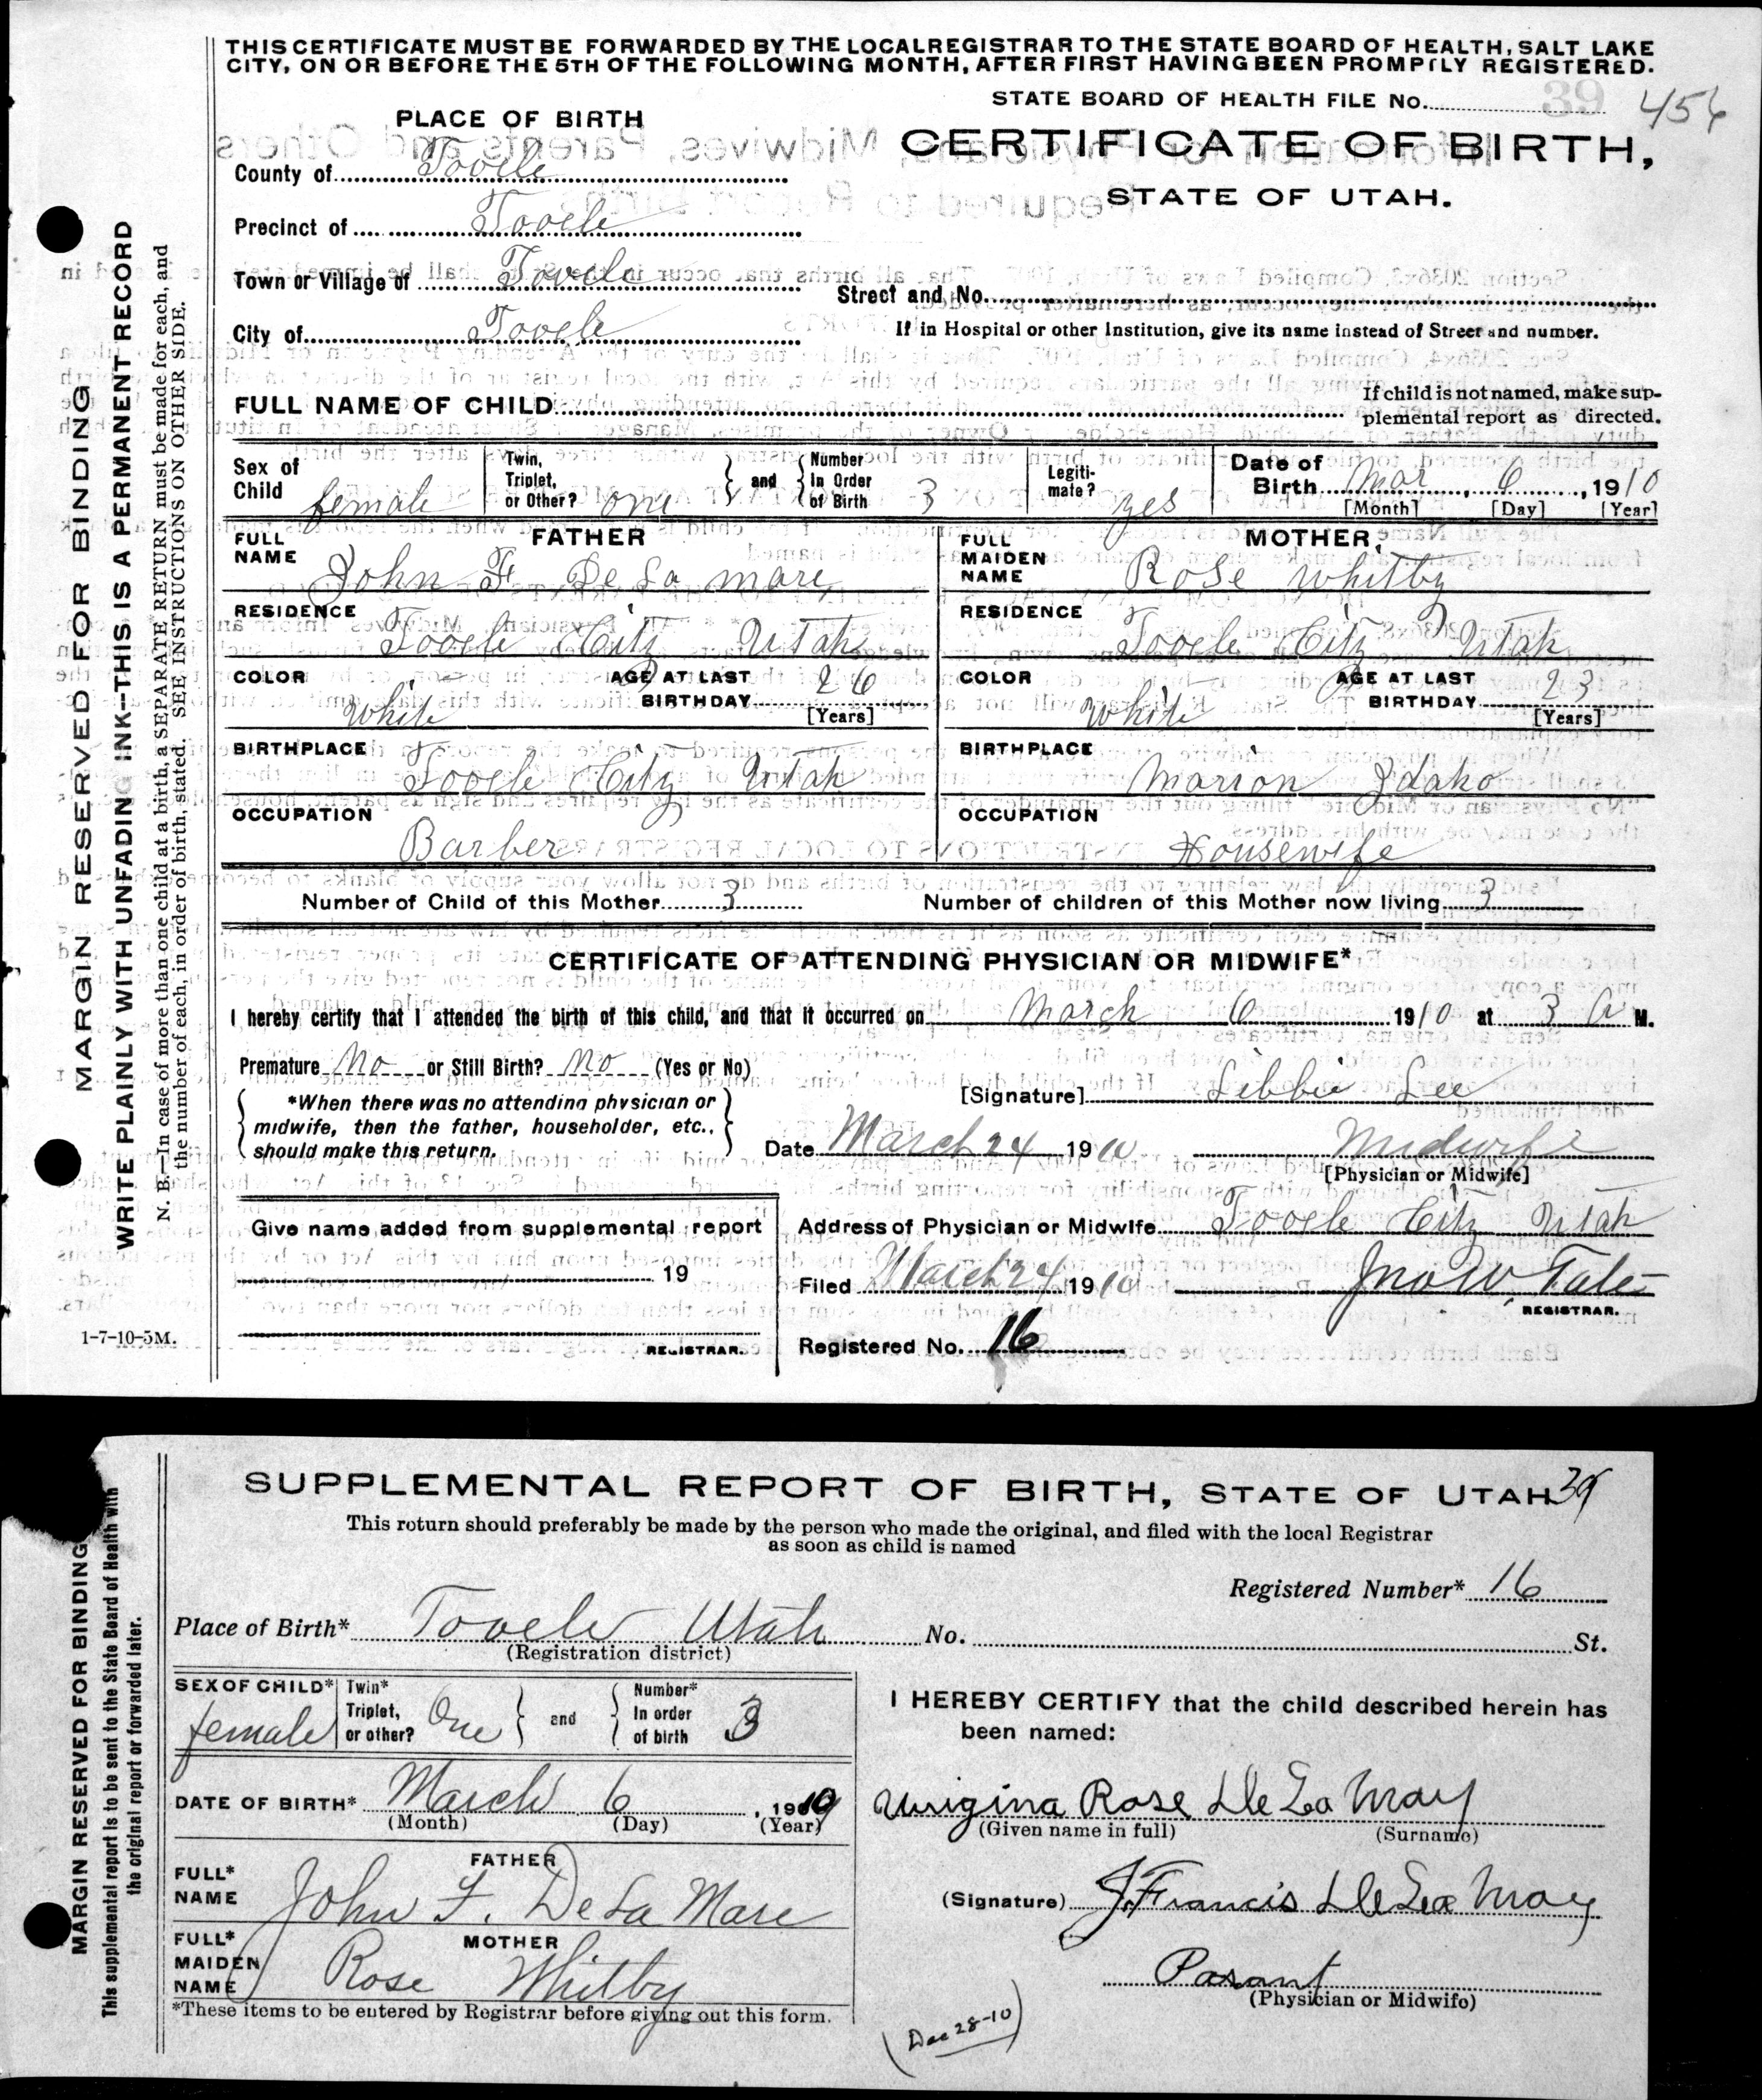 THIS CERTIFICATE MUST BE FORWARDED BY THE LOCAL REGISTRAR TO THE STATE BOARD OF HEALTH, SALT LAKE
CITY, ON OR BEFORE THE 5TH OF THE FOLLOWING MONTH, AFTER FIRST HAVING BEEN PROMPTLY REGISTERED.
STATE BOARD OF HEALTH FILE No. 39 456
PLACE OF BIRTH
CERTIFICATE OF BIRTH,
STATE OF UTAH.
County of Tooele
Precinct of Tooele
Town or Village of Tooele
Street and No.
City of Tooele
If in Hospital or other Institution, give its name instead of Street and number.
FULL NAME OF CHILD
If child is not named, make sup-
plemental report as directed.
Sex of Child female
Twin, Triplet, or Other? one
and
Number In Order of Birth 3
Legiti-mate? yes
Date of Birth Mar, 6, 1910
[Month] [Day] [Year]
FATHER
FULL NAME John F De La mare
RESIDENCE Tooele City Utah
COLOR White
AGE AT LAST BIRTHDAY 26 [Years]
BIRTHPLACE Tooele City Utah
OCCUPATION Barber
MOTHER
FULL MAIDEN NAME Rose Whitby
RESIDENCE Tooele City Utah
COLOR White
AGE AT LAST BIRTHDAY 23 [Years]
BIRTHPLACE Marion Idaho
OCCUPATION Housewife
Number of Child of this Mother 3 Number of children of this Mother now living 3
CERTIFICATE OF ATTENDING PHYSICIAN OR MIDWIFE*
I hereby certify that I attended the birth of this child, and that it occurred on March 6 1910 at 3 A M.
Premature No or Still Birth? No (Yes or No)
[Signature] Libbie Lee
*When there was no attending physician or
midwife, then the father, householder, etc.,
should make this return.
Date March 24 1910
Midwife
[Physician or Midwife]
Give name added from supplemental report
19
REGISTRAR.
Address of Physician or Midwife Tooele City Utah
Filed March 24 1910 Jno W. Tate
REGISTRAR.
Registered No. 16
1-7-10-5M.
MARGIN RESERVED FOR BINDING
WRITE PLAINLY WITH UNFADING INK--THIS IS A PERMANENT RECORD
N. B.—In case of more than one child at a birth, a SEPARATE RETURN must be made for each, and
the number of each, in order of birth, stated. SEE INSTRUCTIONS ON OTHER SIDE.
SUPPLEMENTAL REPORT OF BIRTH, STATE OF UTAH 39
This return should preferably be made by the person who made the original, and filed with the local Registrar
as soon as child is named
Registered Number* 16
Place of Birth* Tooele Utah No. St.
(Registration district)
SEX OF CHILD* female
Twin* Triplet, or other? One
and
Number* In order of birth 3
DATE OF BIRTH* March 6, 1910
(Month) (Day) (Year)
FATHER
FULL* NAME John F. De La Mare
MOTHER
FULL* MAIDEN NAME Rose Whitby
*These items to be entered by Registrar before giving out this form.
I HEREBY CERTIFY that the child described herein has
been named:
Urigina Rose De La May
(Given name in full) (Surname)
(Signature) J. Francis De La May
Parant
(Physician or Midwife)
(Dec 28-10)
MARGIN RESERVED FOR BINDING
This supplemental report is to be sent to the State Board of Health with
the original report or forwarded later.